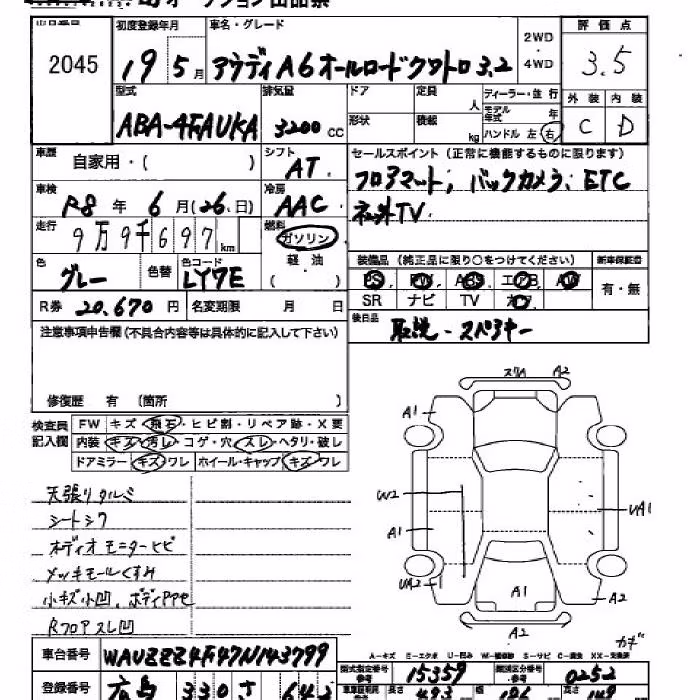 オークション出品票
出品番号 2045
初度登録年月 19 5月
車名・グレード アウディA6オールロードクワトロ3.2
2WD・4WD
評価点 3.5
外装 C 内装 D
型式 ABA-4FAUKA
排気量 3200 CC
ドア 定員 人
形状 積載 kg
ディーラー・並行
モデル年式 年
ハンドル 左 右
車歴 自家用・( )
シフト AT
セールスポイント(正常に機能するものに限ります)
フロアマット; バックカメラ、ETC
社外TV
車検 R8年 6月(26日)
冷房 AAC
走行 9万9千697km
燃料 ガソリン
軽・油
( )
色 グレー 色替 色コード LY7E
装備品(純正品に限り○をつけてください) 新車保証書
PS PW ABS エアB AW 有・無
SR ナビ TV カワ
R券 20,670円 名変期限 月 日
後日品 取説-スペアキー
注意事項申告欄(不具合内容等は具体的に記入して下さい)
修復歴 有 (箇所 )
検査員記入欄
FW キズ・飛石・ヒビ割・リペア跡・X要
内装 キズ・汚レ・コゲ・穴・スレ・ヘタリ・破レ
ドアミラー キズ・ワレ ホイール・キャップ キズ・ワレ
天張りタルミ
シートシワ
オーディオモニターヒビ
メッキモールくすみ
小キズ小凹、ボディ
Rフロアスレ凹
スリハ A2
A1 A2
W2
A1
UA1
UA2
A1
A2
A2
カギ
A-キズ E-エクボ U-凹み W-補修跡 S-サビ C-腐食 XX-交換済
車台番号 WAUZZZ4F47N143799
型式指定番号・参考 15359
類別区分番号・参考 0252
登録番号 広島 330 さ 642
車車証記載・参考 長さ 493 cm 幅 186 cm 高さ 149